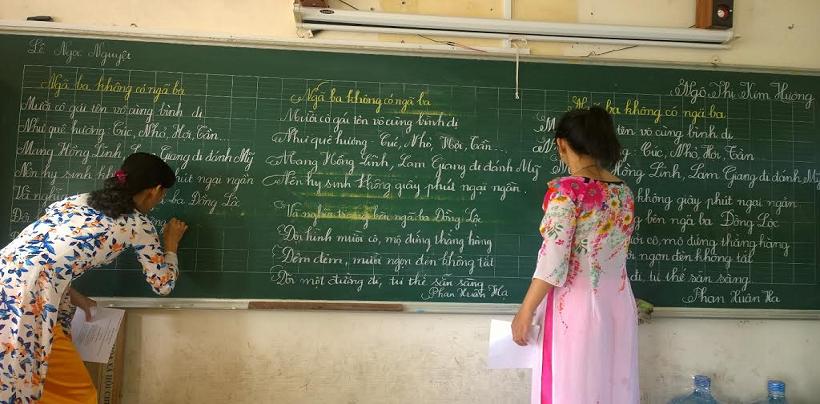 Lê Ngọc Nguyệt
Ngã ba không có ngã ba
Mười cô gái tên vô cùng bình dị
Như quê hương: Cúc, Nhỏ, Hợi, Tần...
Mang Hồng Lĩnh, Lam Giang đi đánh Mỹ
Nên hy sinh phút ngại ngần
Và ba Đồng Lộc
Ngã ba không có ngã ba
Mười cô gái tên vô cùng bình dị
Như quê hương: Cúc, Nhỏ, Hợi, Tần...
Mang Hồng Lĩnh, Lam Giang đi đánh Mỹ
Nên hy sinh không giây phút ngại ngần.
Và nghĩa trang bên ngã ba Đồng Lộc
Đội hình mười cô, mộ đứng thẳng hàng
Đêm đêm, mười ngọn đèn không tắt
Dõi một đường đi, tư thế sẵn sàng
Phan Xuân Hạ
Ngô Thị Kim Hương
Ngã ba không có ngã ba
tên vô cùng bình dị
Cúc, Nhỏ, Hợi, Tần
Lĩnh, Lam Giang đi đánh Mỹ
không giây phút ngại ngần
bên ngã ba Đồng Lộc
cô, mộ đứng thẳng hàng
ngọn đèn không tắt
đi, tư thế sẵn sàng
Phan Xuân Hạ